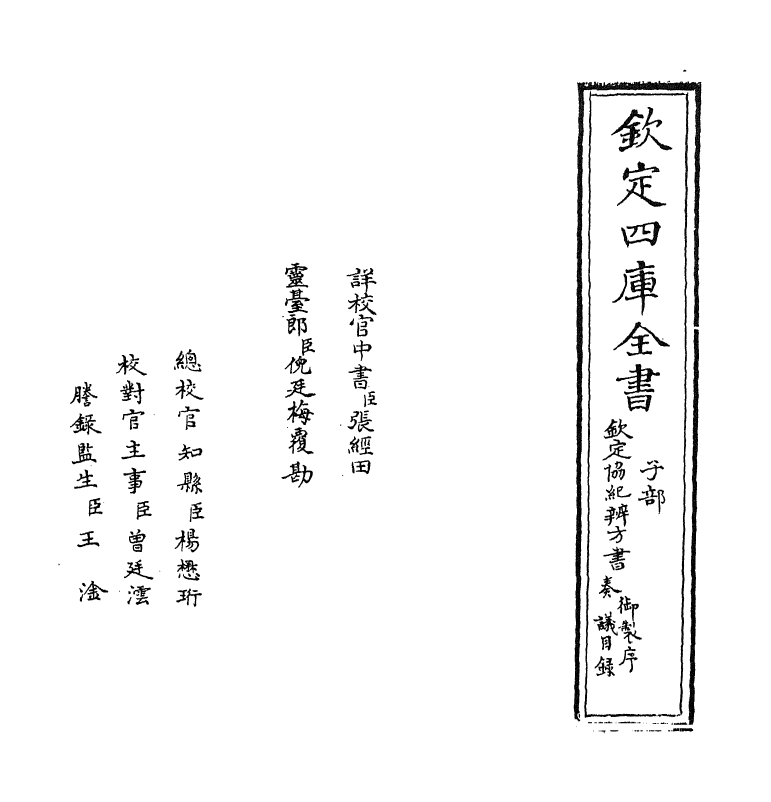 欽定四庫全書
子部
欽定協紀辨方書
御製序
奏議目録
詳校官中書臣張經田
靈臺郎臣倪廷梅覆勘
總校官知縣臣楊懋珩
校對官主事臣曾廷澐
謄録監生臣王淦